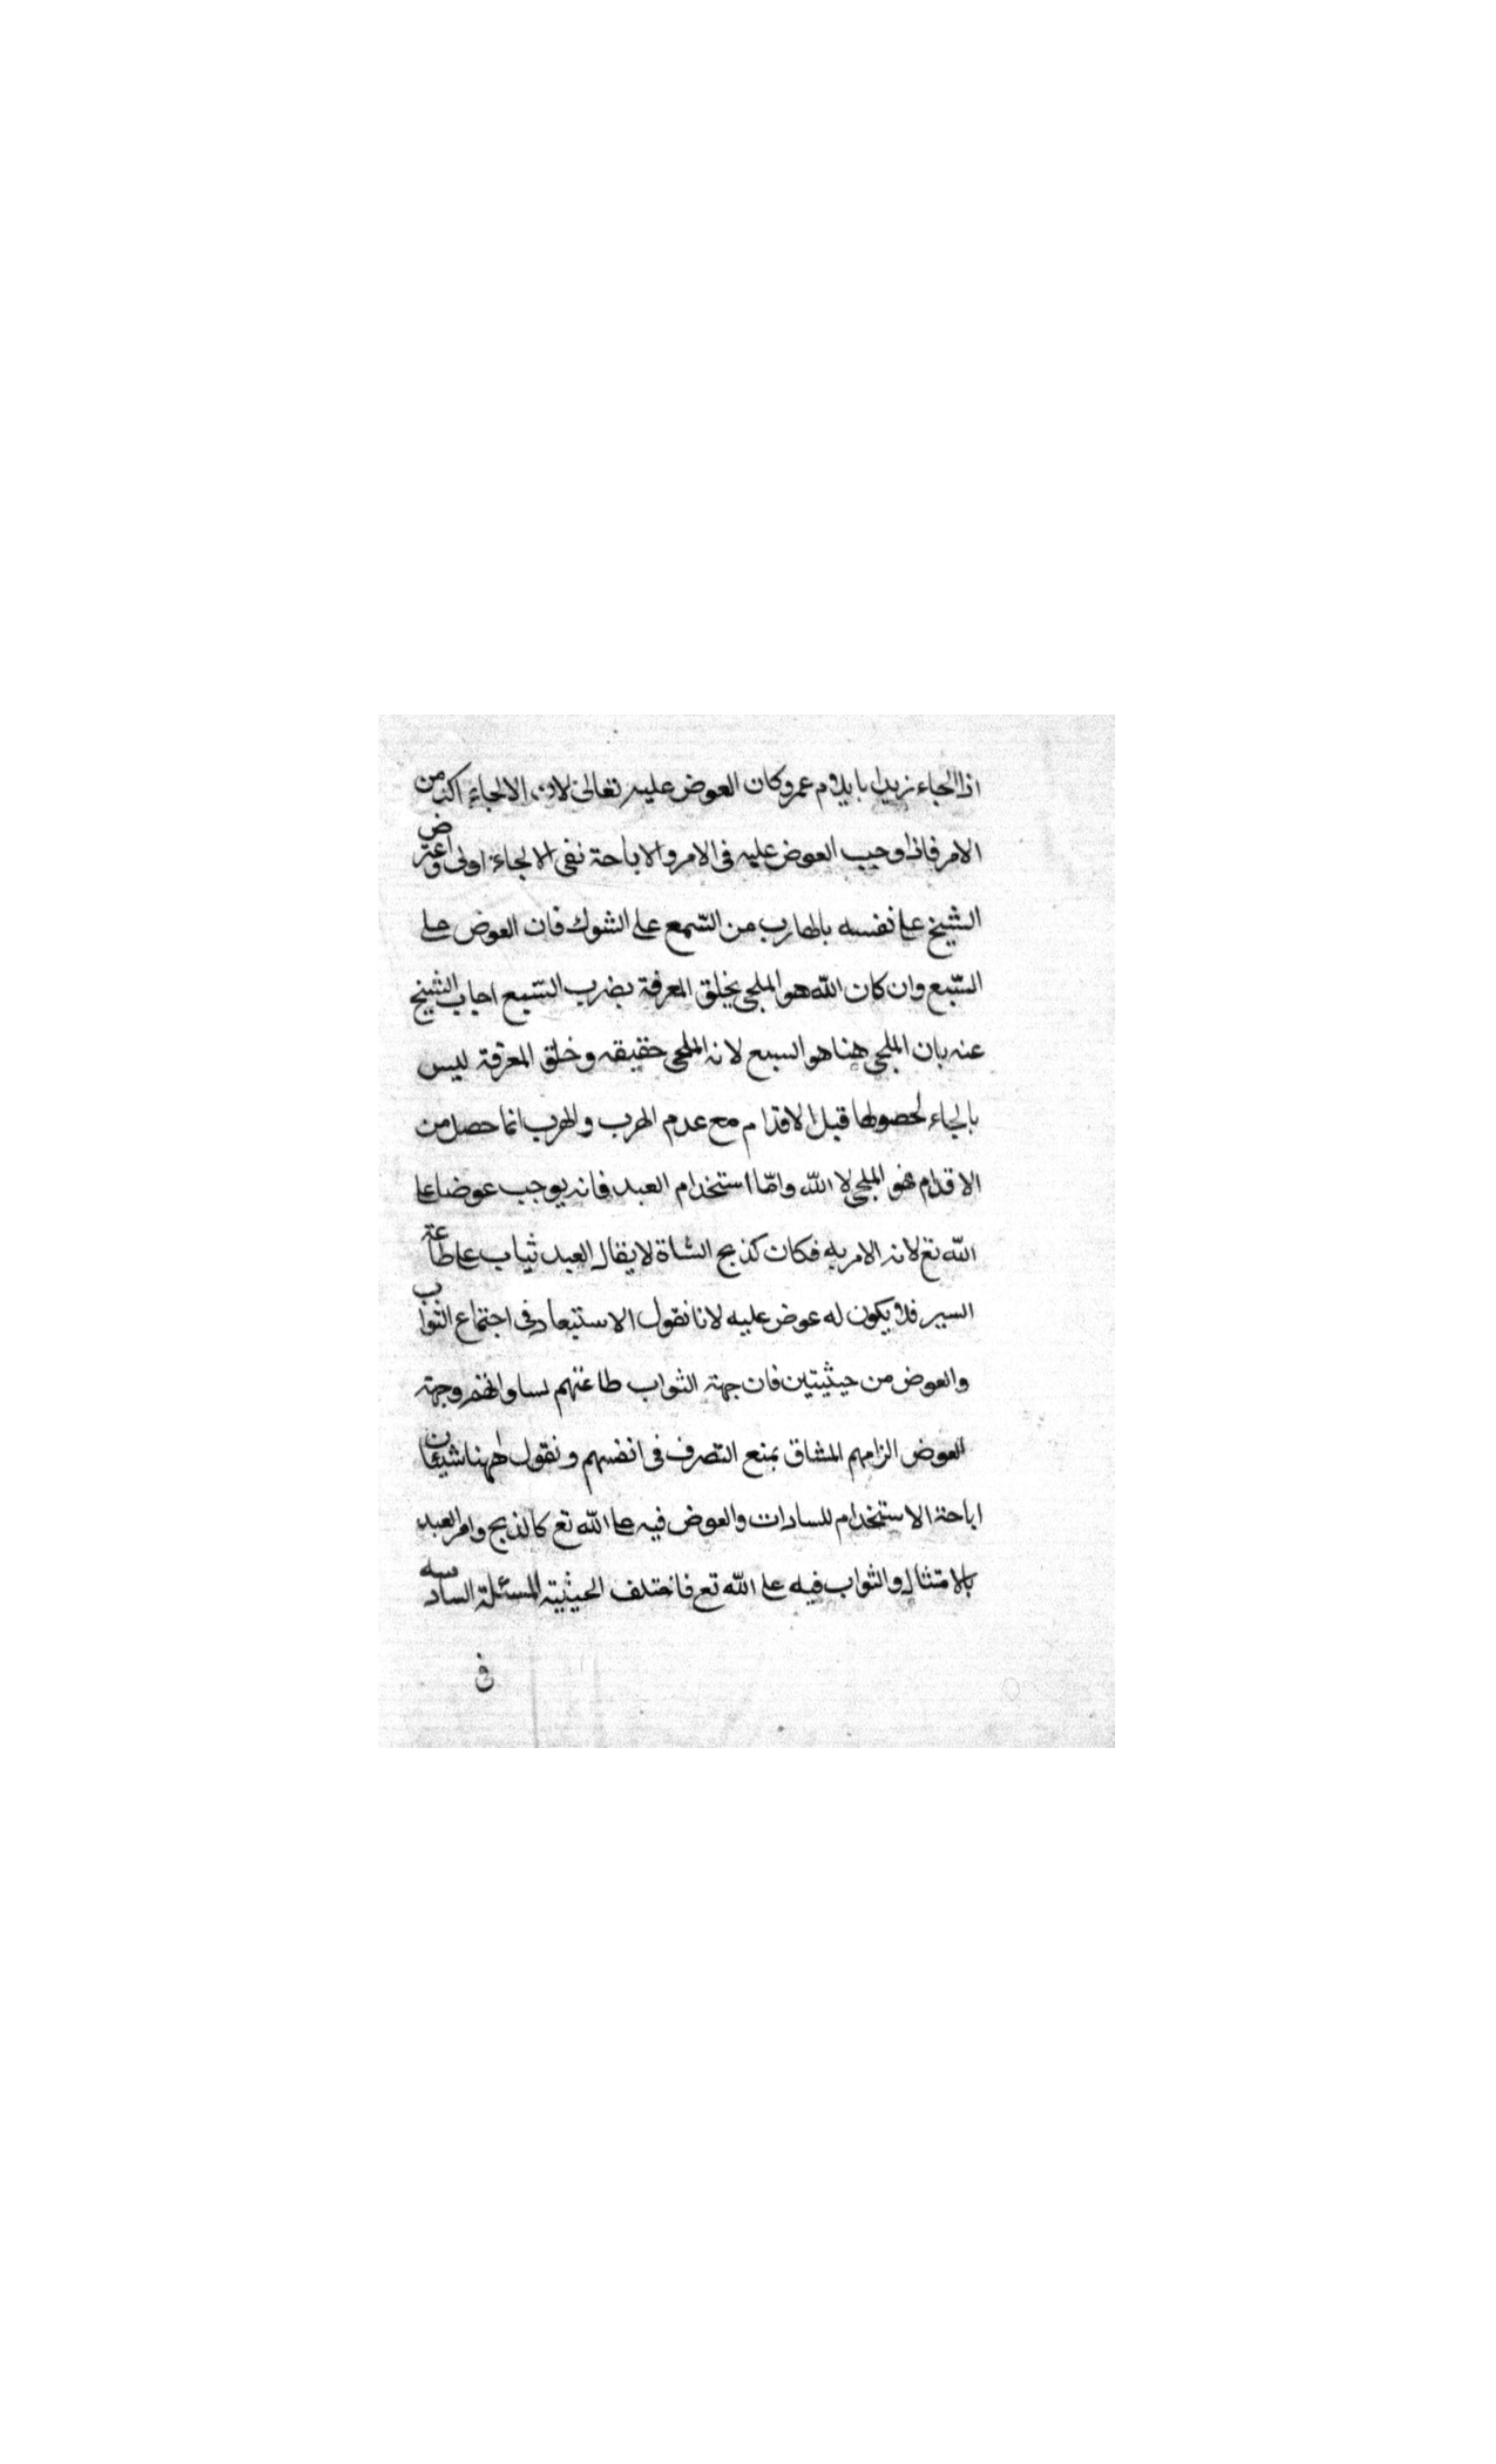 اذا الجاء زيدا بايلام عمرو كان العوض عليه تعالى لان الالجاء اكثر من
الامر فاذا وجب العوض عليه فى الامر والاباحة نفى الالجاء اولى واعترض
الشيخ على نفسه بالهارب من السبع على الشوك فان العوض على
السّبع وان كان الله هو الملجى بخلق المعرفة بضرب السّبع اجاب الشيخ
عنه بان الملجى هنا هو السبع لانه الملجى حقيقه وخلق المعرفة ليس
بالجاء لحصولها قبل الاقدام مع عدم الهرب والهرب انما حصل من
الاقدام فهو الملجى لا الله وامّا استخدام العبد فانه يوجب عوضا على
الله تع لانه الامر به فكان كذبح الشاة لا يقال العبد ثياب على طاعة
السير فلا يكون له عوض عليه لانا نقول الاستبعاد فى اجتماع الثواب
والعوض من حيثيتين فان جهة الثواب طاعتهم لساداتهم وجهة
العوض الزامهم المشاق بمنع التصرف فى انفسهم ونقول ههنا شيئان
اباحة الاستخدام للسادات والعوض فيه على الله تع كالذبح وامر العبد
بالامتثال والثواب فيه على الله تع فاختلف الحيثية المسئلة السادسه
فى